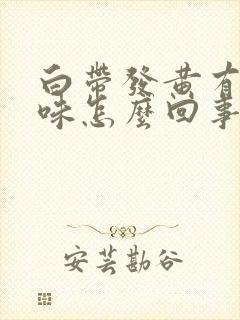 白帶發黃有
味怎麼回事
安芸勘谷